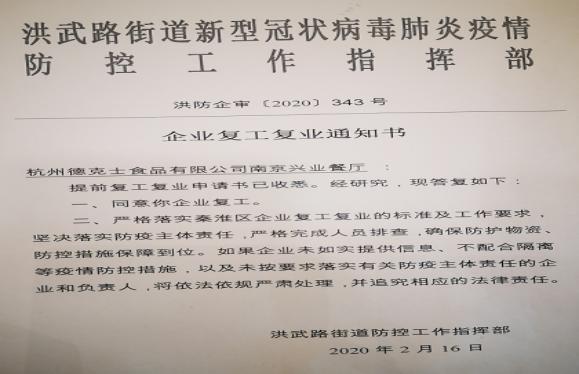 洪武路街道新型冠状病毒肺炎疫情
防控工作指挥部
洪防企审〔2020〕343号
企业复工复业通知书
杭州德克士食品有限公司南京兴业餐厅：
提前复工复业申请书已收悉。经研究，现答复如下：
一、同意你企业复工。
二、严格落实秦淮区企业复工复业的标准及工作要求，
坚决落实防疫主体责任，严格完成人员排查，确保防护物资、
防控措施保障到位。如果企业未如实提供信息、不配合隔离
等疫情防控措施，以及未按要求落实有关防疫主体责任的企
业和负责人，将依法依规严肃处理，并追究相应的法律责任。
洪武路街道防控工作指挥部
2020年2月16日